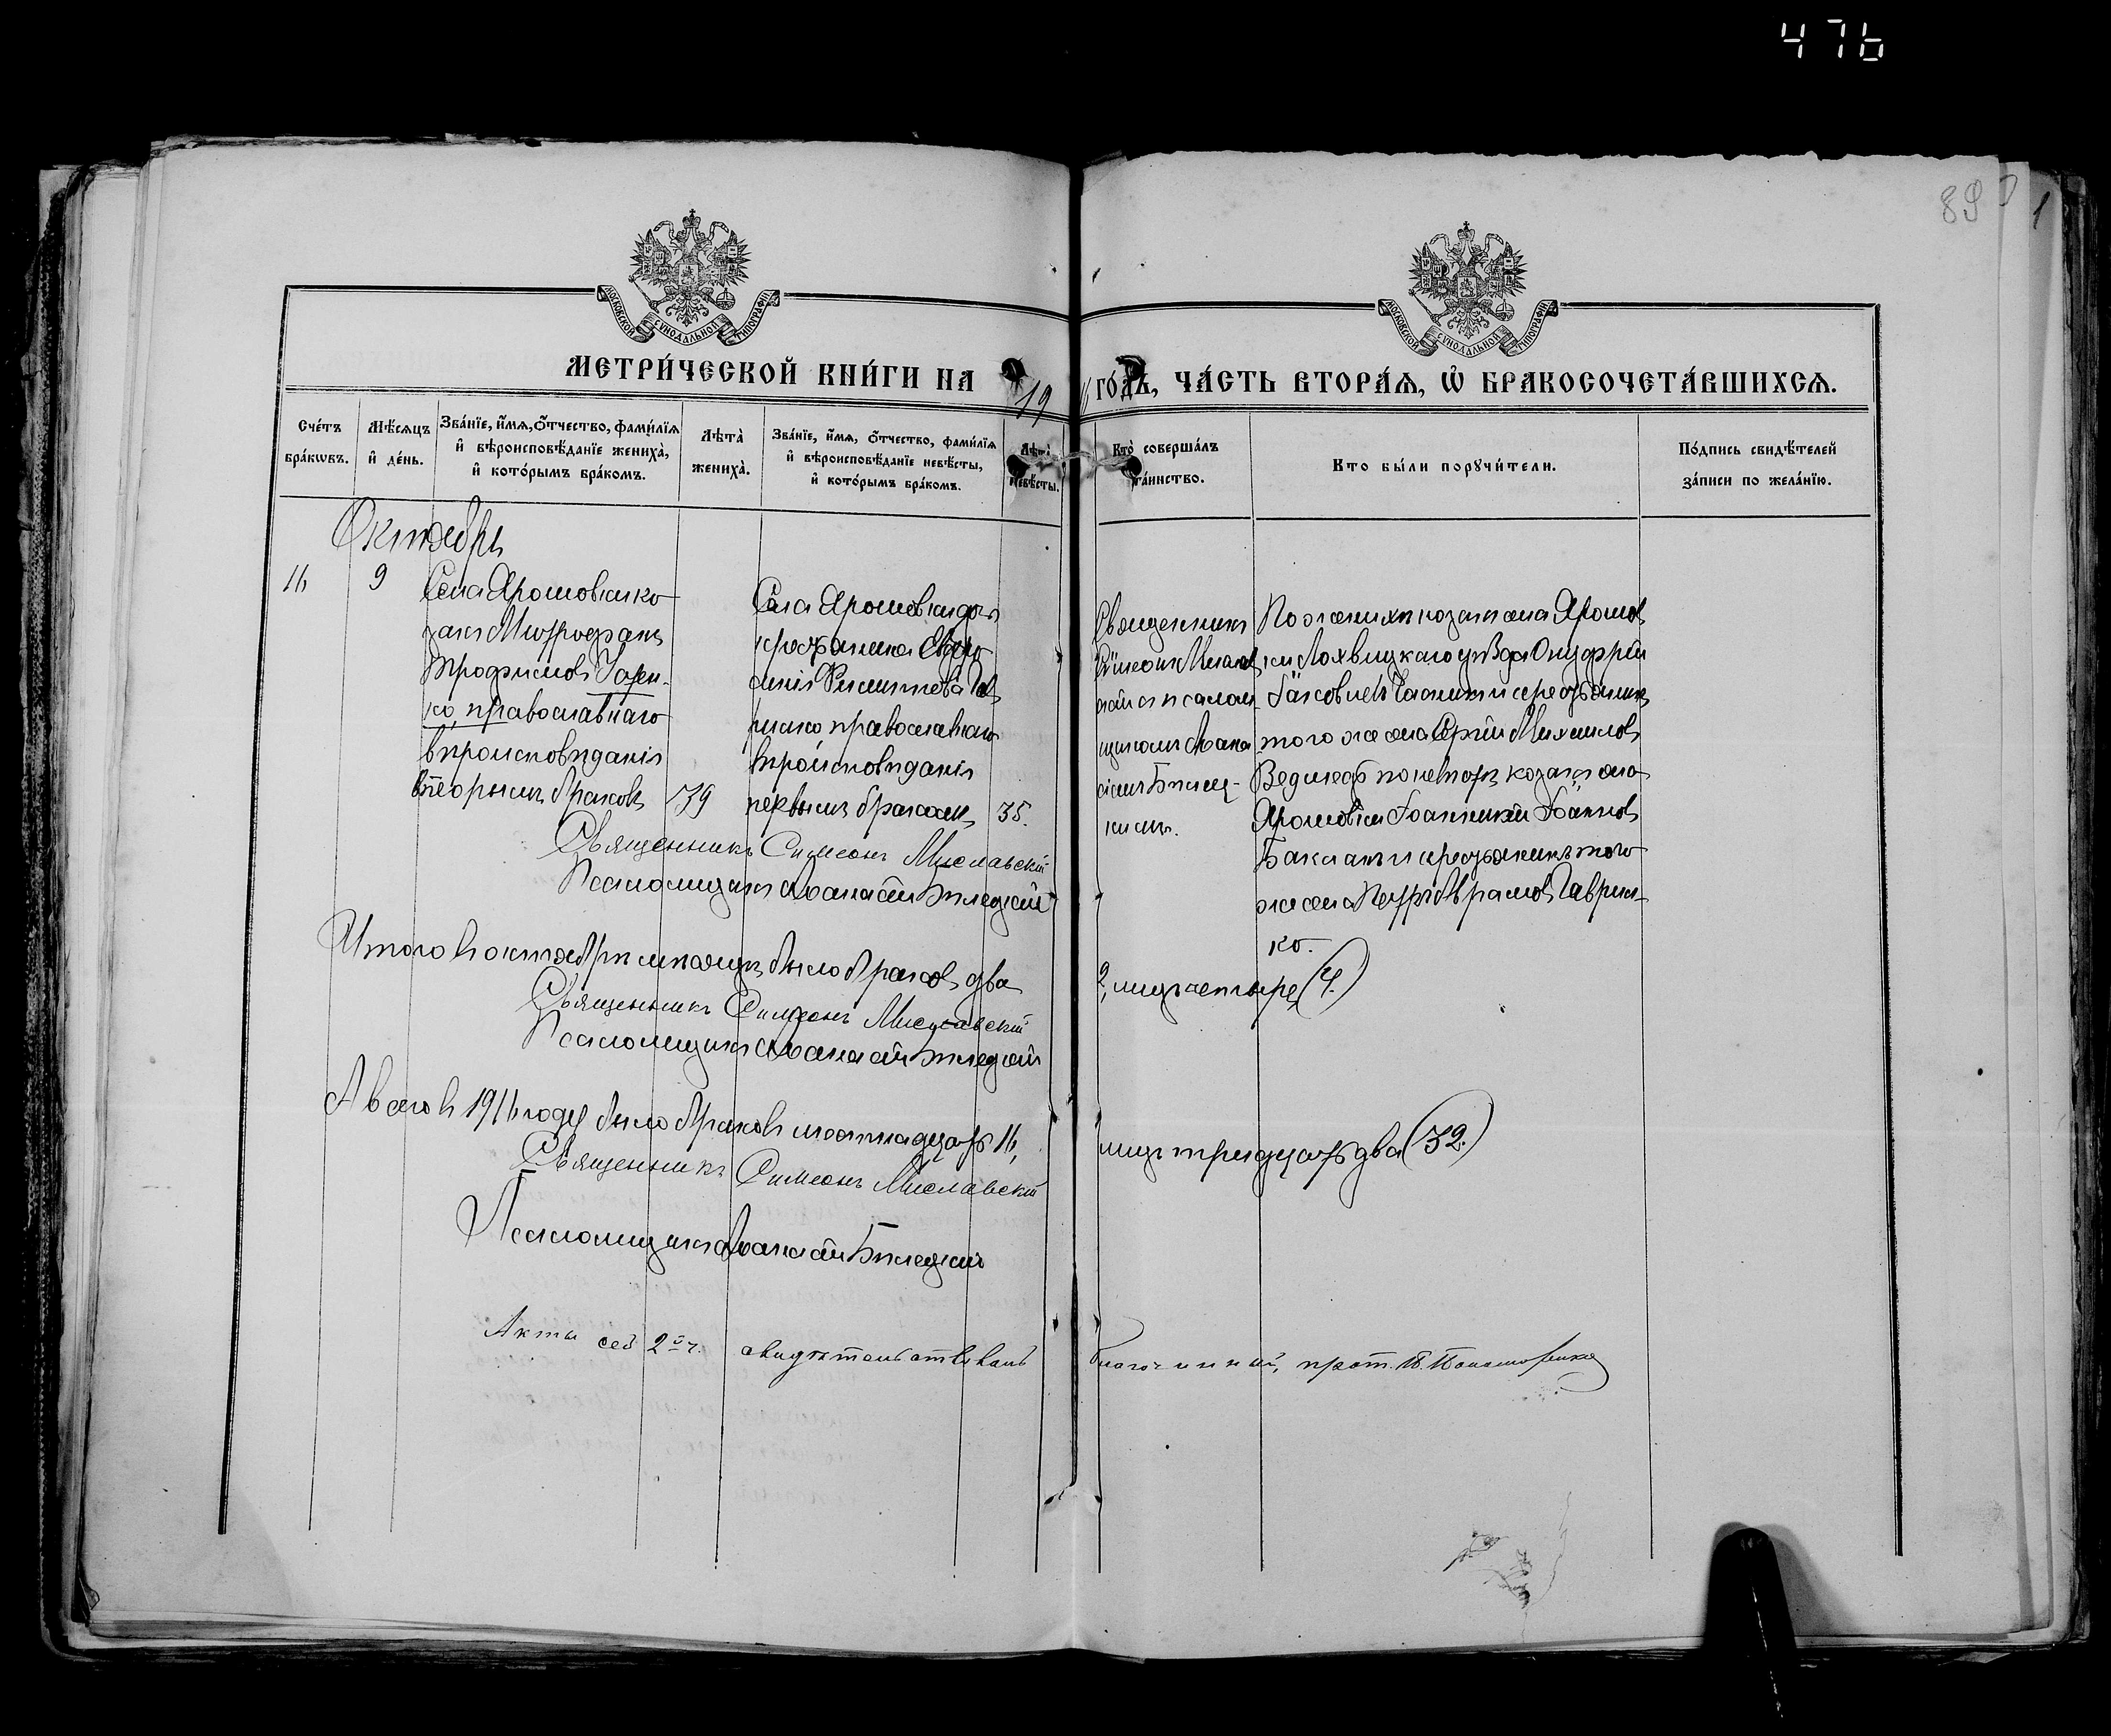 476
89
МОСКОВСКОЙ СѴНОДАЛЬНОЙ ТИПОГРАФІИ
МОСКОВСКОЙ СѴНОДАЛЬНОЙ ТИПОГРАФІИ
МЕТРИ́ЧЕСКОЙ КНИ́ГИ НА 1916 ГО́ДЪ, ЧА́СТЬ ВТОРА́Ѧ, Ѡ҆ БРАКОСОЧЕТА́ВШИХСѦ.
Сче́тъ бра́кѡвъ.
Мѣ́сѧцъ и҆ де́нь.
Зва́нїе, и҆́мѧ, ѻ҆́тчество, фами́лїѧ и҆ вѣроисповѣ́данїе жениха̀, и҆ кото́рымъ бра́комъ.
Лѣта̀ жениха̀.
Зва́нїе, и҆́мѧ, ѻ҆́тчество, фами́лїѧ и҆ вѣроисповѣ́данїе невѣ́сты, и҆ кото́рымъ бра́комъ.
Лѣта̀ невѣ́сты.
Кто̀ соверша́лъ та́инство.
Кто бы́ли порꙋчи́тели.
По́дпись свидѣ́телей за́писи по жела́нїю.
Октябрь
16
9
Села Ярошовки ко-
закъ Митрофанъ
Трофимовъ
православнаго
вѣроисповѣданія
вторымъ бракомъ
39
Села Ярошовки дочь
Евдо-
кія Филиппова
православнаго
вѣроисповѣданія
первымъ бракомъ
35.
Священникъ
Симеонъ Мислав
скій и псалом-
щикомъ Аѳана
сіемъ Бѣлец-
кимъ.
По женихѣ козакъ села Ярошов
ки Лохвицкаго уѣзда Онуфрій
Іаковлевъ
того же села Сергій Михаиловъ
по невѣстѣ козакъ села
Ярошовки Іоанникій Іоанновъ
Баклагъ и того
же села Петръ Абрамовъ Гаврил-
ко.
Священникъ Симеонъ Миславскій
Псаломщикъ Аѳанасій Бѣлецкій
Итого въ октябрѣ мѣсяцѣ было браковъ два
2, лицъ четыре (4.)
Священникъ Симеонъ Миславскій
Псаломщикъ Аѳанасій Бѣлецкій
А всего въ 1916 году было браковъ шестнадцать 16,
лицъ тридцать два (32.)
Священникъ Симеонъ Миславскій
Псаломщикъ Аѳанасій Бѣлецкій
Акты сей 2-й ч. свидѣтельствовалъ благочинный, прот. П.